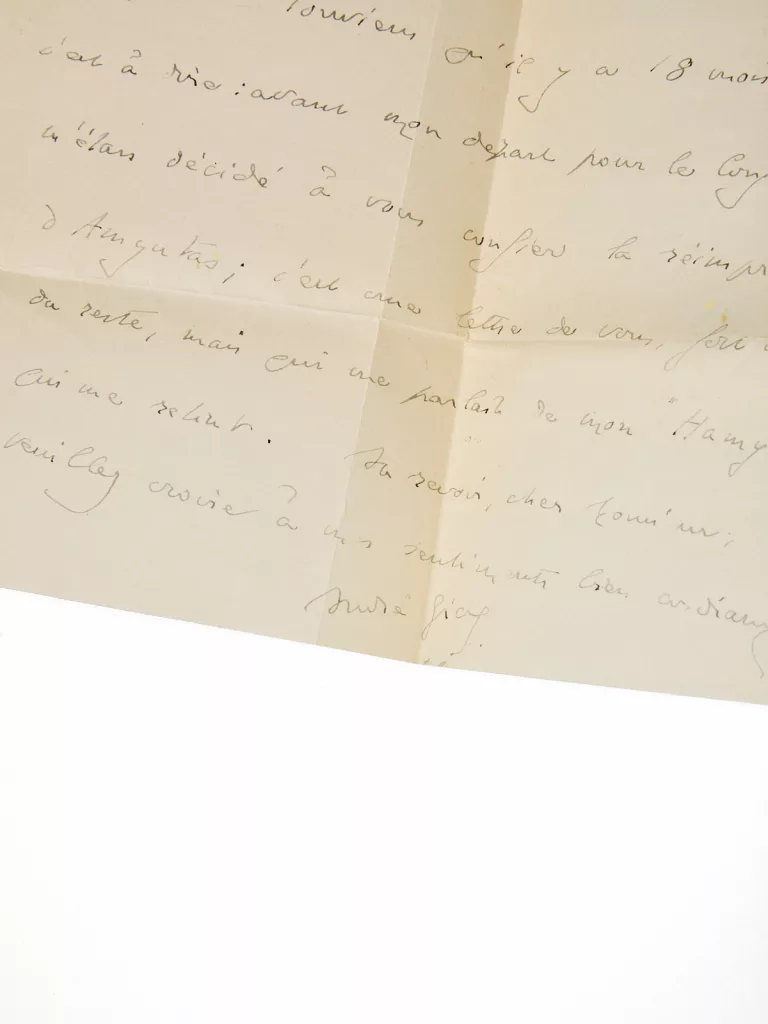 souviens qu'il y a 18 mois
c'est à dire : avant mon départ pour le Cong
m'étais décidé à vous confier la réimpr
d'Amyntas ; c'est une lettre de vous, fort
du reste, mais qui me parlait de mon "Hamy
qui me retint. Au revoir, cher Monsieur ;
veuillez croire à mes sentiments bien cordiaux
André Gide.